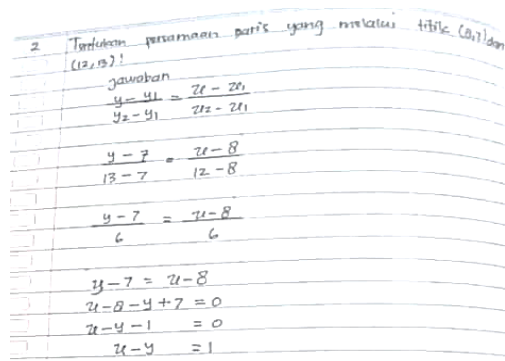 2 Tentukan persamaan garis yang melalui titik (8,7) dan
(12,13)!
jawaban
y - y1 / y2 - y1 = x - x1 / x2 - x1
y - 7 / 13 - 7 = x - 8 / 12 - 8
y - 7 / 6 = x - 8 / 6
y - 7 = x - 8
x - 8 - y + 7 = 0
x - y - 1 = 0
x - y = 1